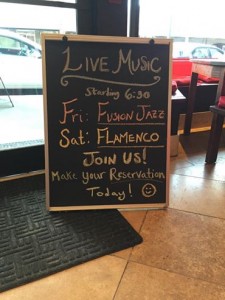 Live Music
Starting 6:30
Fri: Fusion Jazz
Sat: Flamenco
Join Us!
Make Your Reservation
Today!